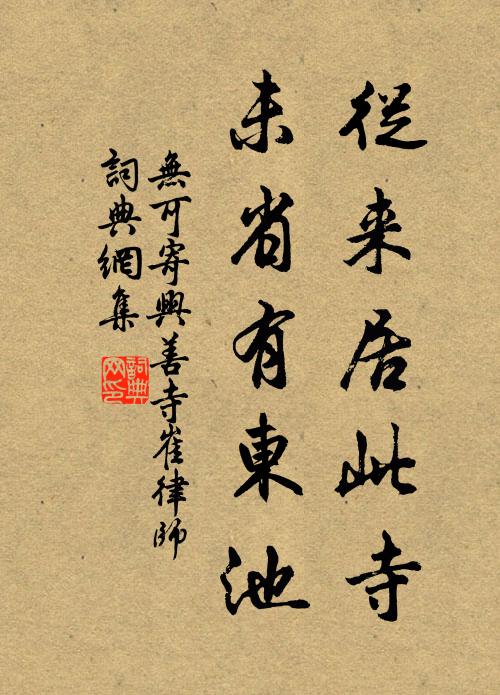 從来居此寺
未省有東池
無可寄興善寺崔律師
詞典網集
詞典
网印